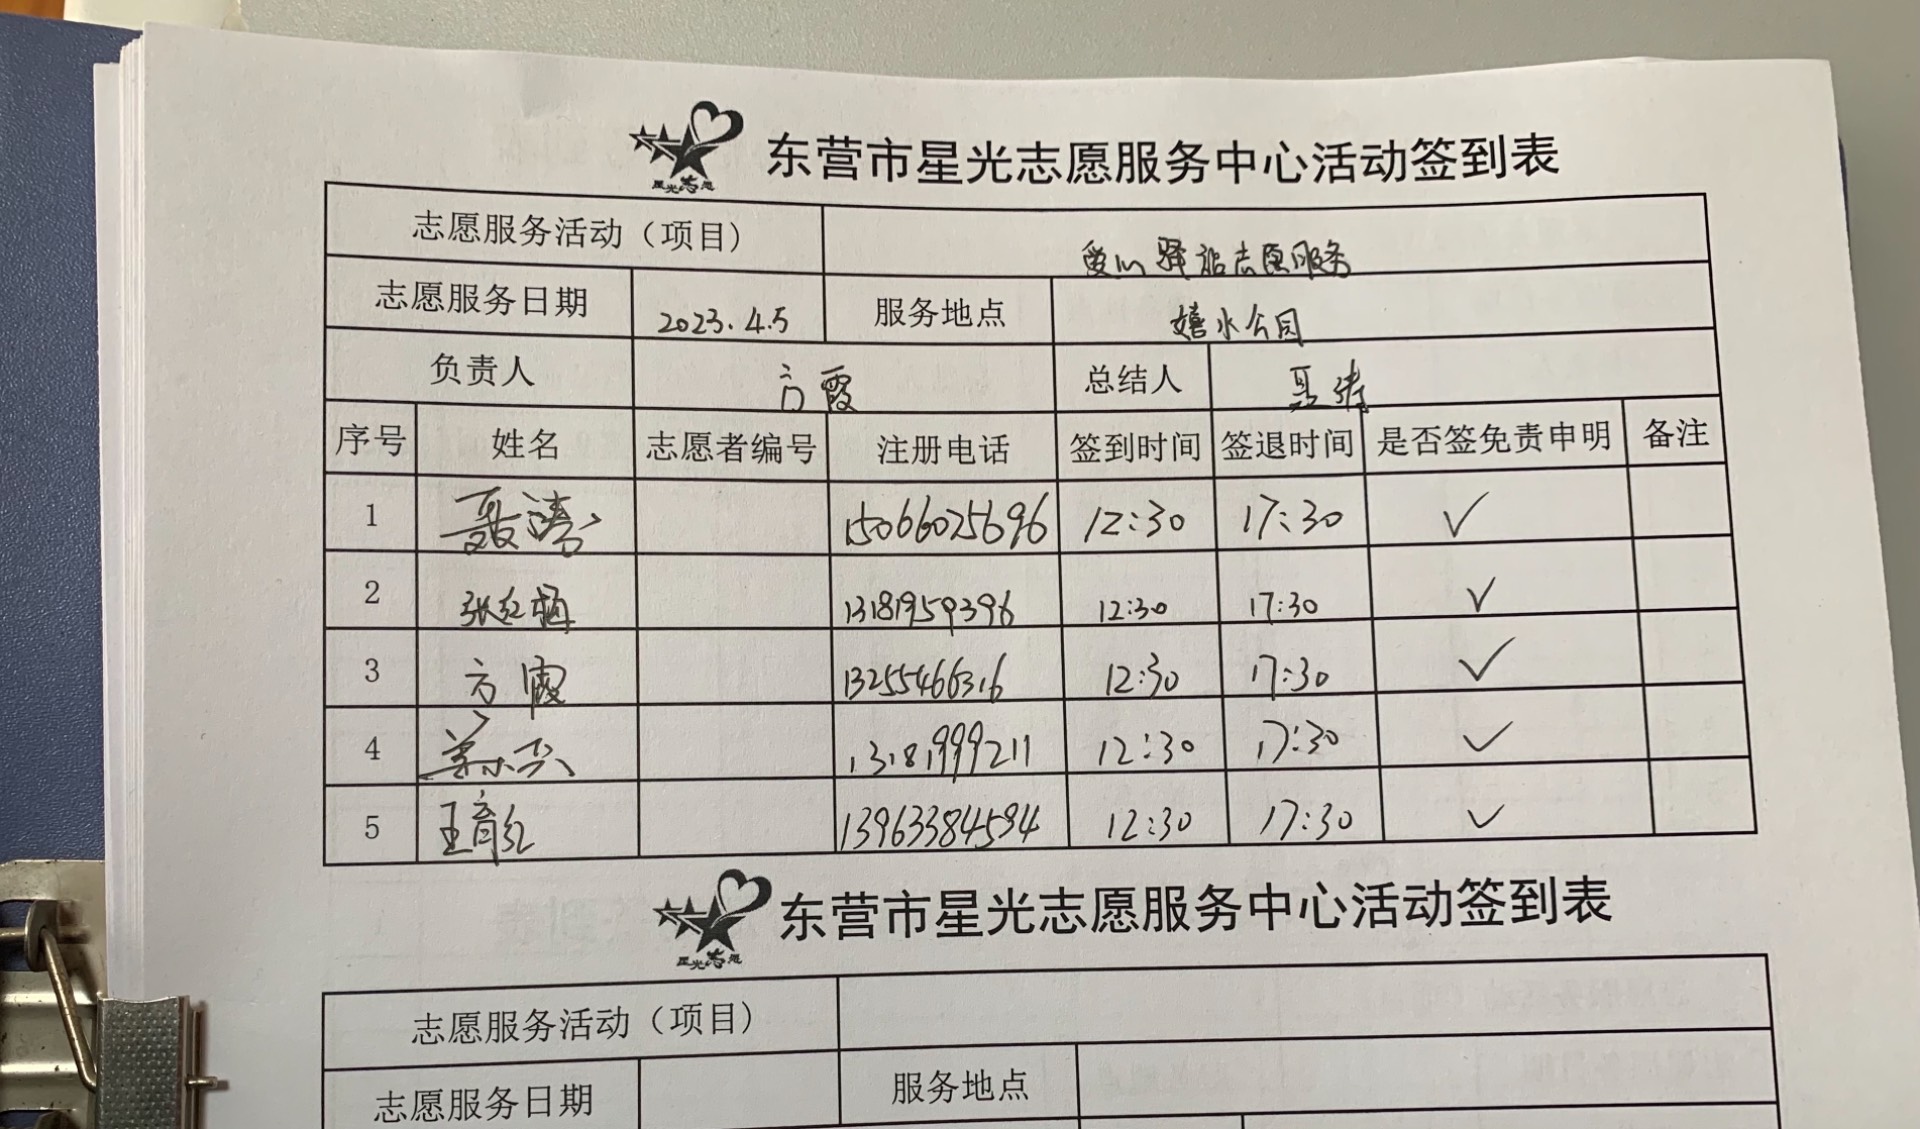 星光志愿
东营市星光志愿服务中心活动签到表
志愿服务活动（项目） 爱心驿站志愿服务
志愿服务日期 2023.4.5 服务地点 嬉水公园
负责人 方霞 总结人 聂涛
序号 姓名 志愿者编号 注册电话 签到时间 签退时间 是否签免责申明 备注
1 聂涛 15066025696 12:30 17:30 ✓
2 张红梅 13181959396 12:30 17:30 ✓
3 方霞 13255466316 12:30 17:30 ✓
4 13181999211 12:30 17:30 ✓
5 王育红 13963384594 12:30 17:30 ✓
星光志愿
东营市星光志愿服务中心活动签到表
志愿服务活动（项目）
志愿服务日期 服务地点